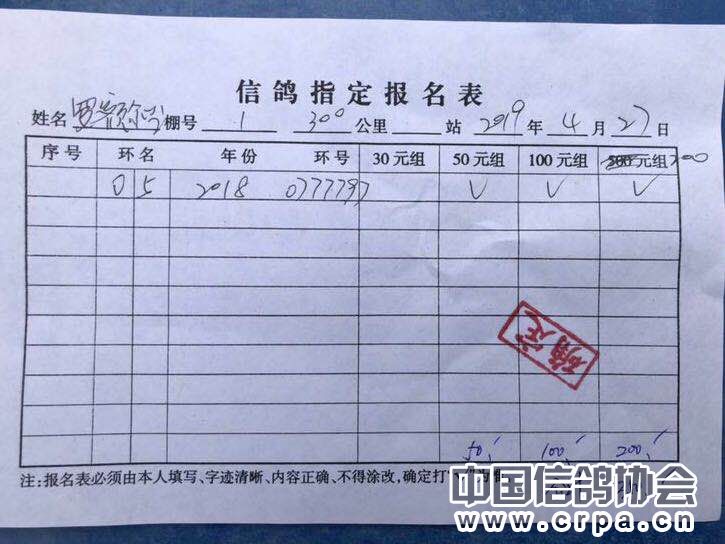 信鸽指定报名表
姓名 罗 棚号 1 300 公里 站 2019 年 4 月 27 日
序号 环名 年份 环号 30元组 50元组 100元组 元组 200
05 2018 0777797 V V V
确定
50 100 200
注:报名表必须由本人填写、字迹清晰、内容正确、不得涂改,确定打
中国信鸽协会
www.crpa.cn